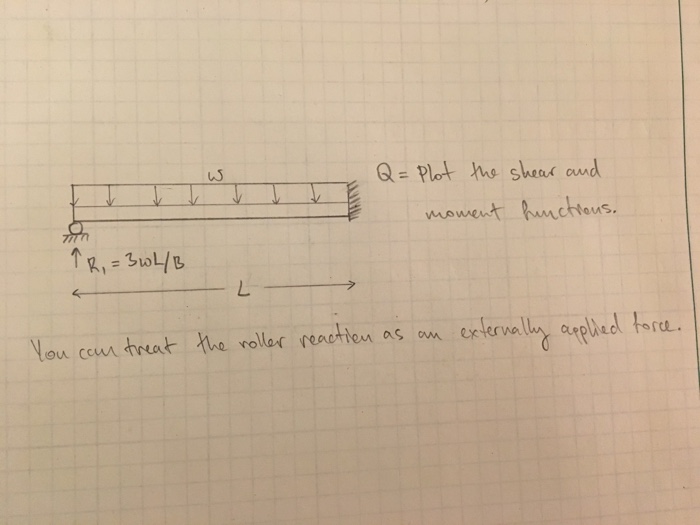 w
Q = Plot the shear and
moment functions.
R₁ = 3wL/8
L
You can treat the roller reaction as an externally applied force.